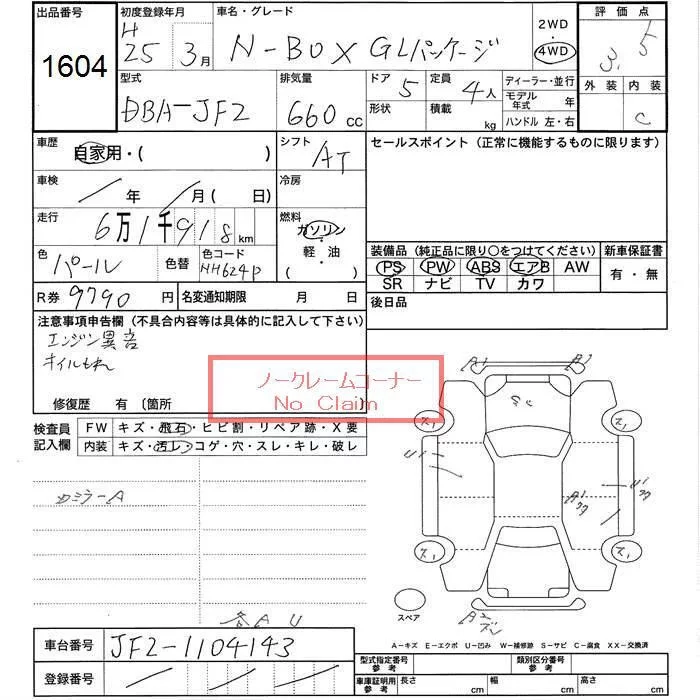 出品番号 1604
初度登録年月 H25 3月
車名・グレード N-BOX GLパッケージ
2WD・4WD
評価点 3.5
外装 内装 C
型式 DBA-JF2
排気量 660cc
ドア 5
形状
定員 4人
積載 kg
ディーラー・並行
モデル年式 年
ハンドル 左・右
車歴 自家用・( )
シフト AT
セールスポイント(正常に機能するものに限ります)
車検 / 年 / 月( 日)
冷房
走行 6万1千918km
燃料 ガソリン・軽・油( )
色 パール
色替
色コード NH624P
装備品(純正品に限り○をつけてください)
新車保証書
PS PW ABS エアB AW
SR ナビ TV カワ
有・無
R券 9790円
名変通知期限 月 日
後日品
注意事項申告欄(不具合内容等は具体的に記入して下さい)
エンジン異音
オイルもれ
ノークレームコーナー
No Claim
修復歴 有 〔箇所 〕
検査員記入欄
FW キズ・飛石・ヒビ割・リペア跡・X要
内装 キズ・汚レ・コゲ・穴・スレ・キレ・破レ
A1 A1
ス1 ス1
U1 U1
ス1 ス1
スペア
各A U
A-キズ E-エクボ U-凹み W-補修跡 S-サビ C-腐食 XX-交換済
車台番号 JF2-1104143
登録番号
型式指定番号 参考
類別区分番号 参考
車庫証明用 参考 長さ cm 幅 cm 高さ cm